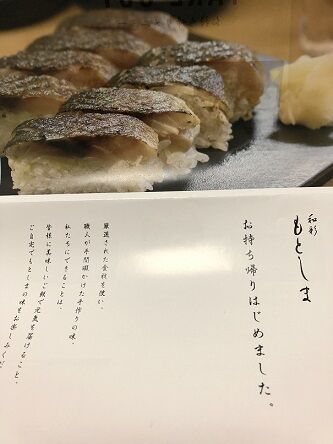 TAKE OUT
和彩
もとしま
お持ち帰りはじめました。
厳選された食材を使い、
職人が手間暇かけた手作りの味。
私たちにできることは、
皆様に美味しいご飯で元気を届けること。
ご自宅でもとしまの味をお楽しみくだ